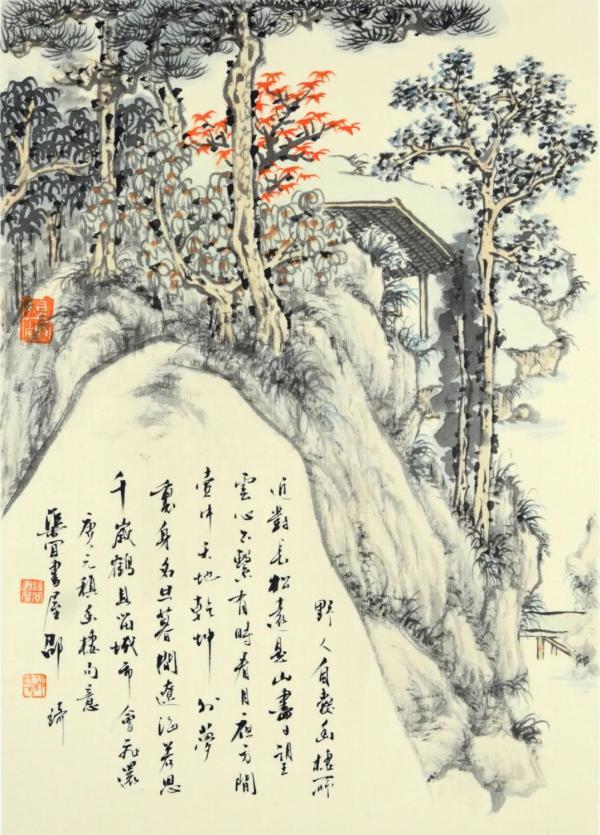 野人自愛幽棲所
近對長松遠是山盡日望
雲心不繫有時看月夜方閒
壺中天地乾坤外夢
裏身名旦暮間遼海若思
千歲鶴且留城市會飛還
唐元稹幽棲句意
書屋邵琦